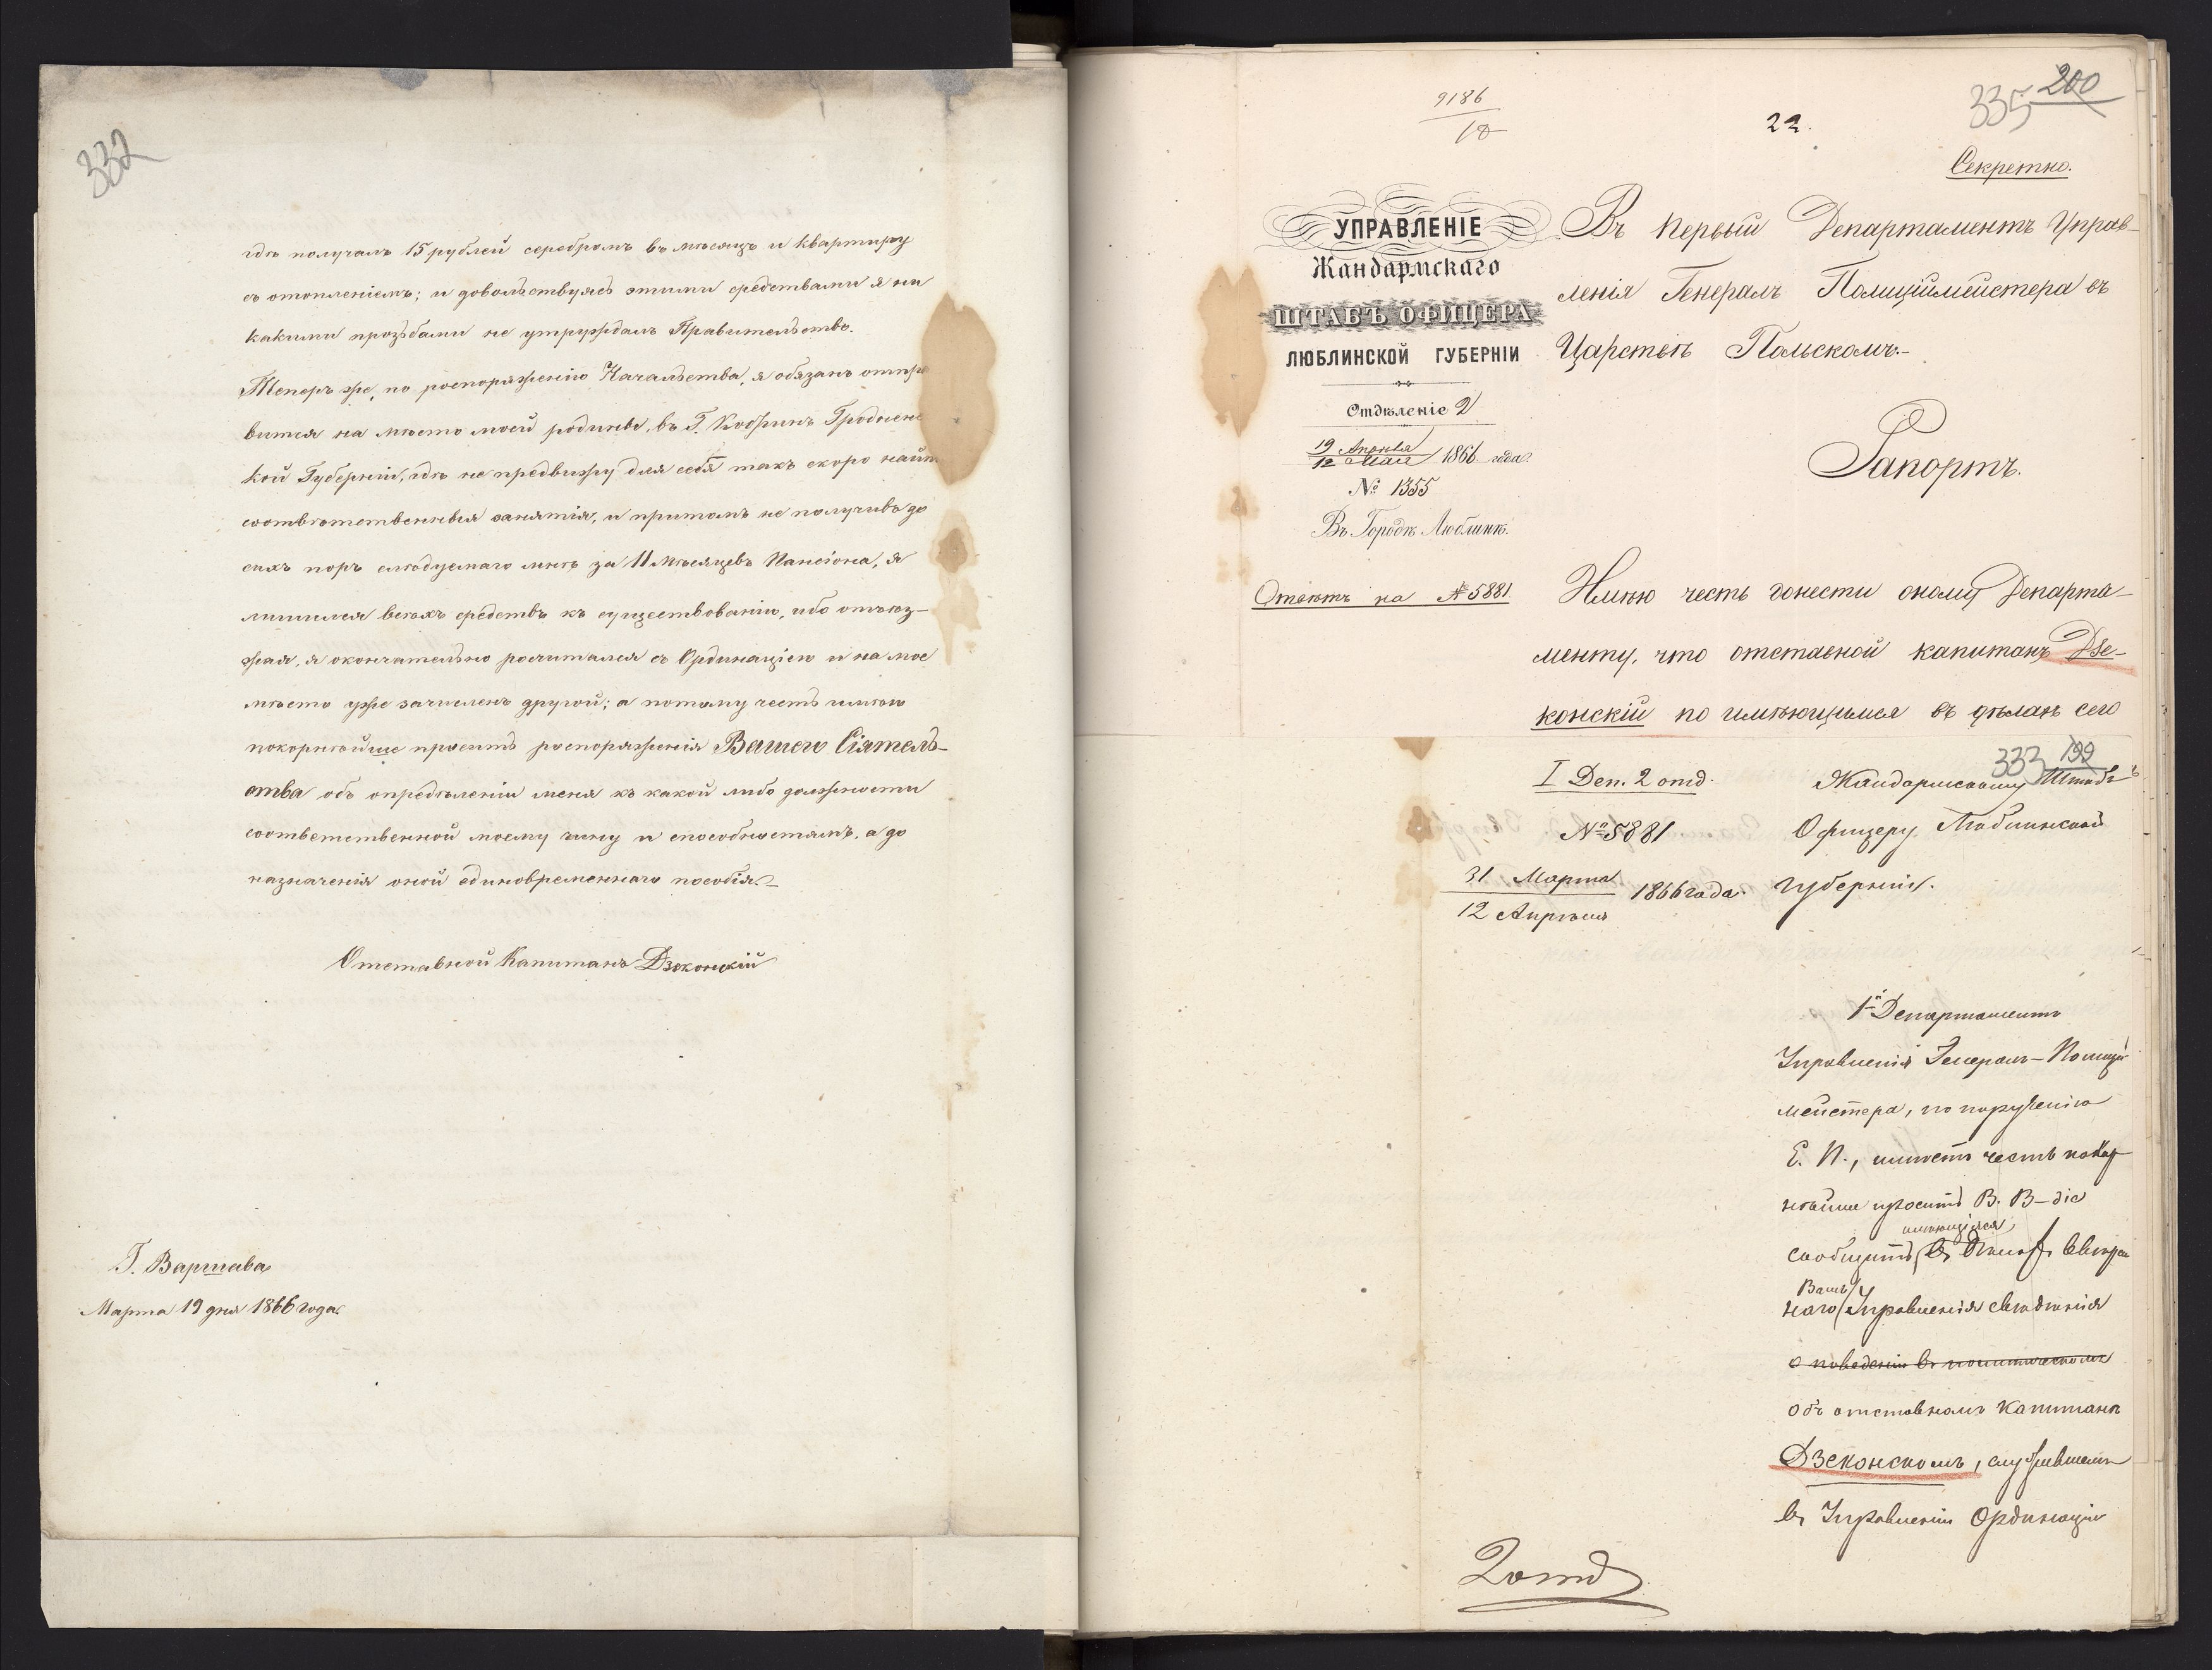 332
гдѣ получалъ 15 рублей серебромъ въ мѣсяцъ и квартиру
съ отопленіемъ; и довольствуясь этими средствами я ни
какими прозьбами не утруждалъ Правительство.
Теперь же, по роспоряженію Начальства, я обязанъ отпра
вится на мѣсто моей родины, въ Г. Кобринъ Гроднен
кой Губерніи, гдѣ не предвижу для себя такъ скоро найт
соотвѣтственныя занятія, и притомъ не получивъ до
сихъ поръ слѣдуемаго мнѣ за 11 мѣсяцевъ Пансіона, я
лишился всѣхъ средствъ къ существованію, ибо отъѣз-
жая, я окончательно росчитался съ Ординаціею и на мое
мѣсто уже зачисленъ другой; а потому честь имѣю
покорнѣйше просить роспоряженія Вашего Сіятель-
ства объ опредѣленіи меня къ какой либо должности
соотвѣтственной моему чину и способностямъ, а до
назначенія оной единовременнаго пособія.
Отставной Капитанъ Дзѣконскій
Г. Варшава
Марта 19 дня 1866 года.
9186
10
22.
335 200
Секретно.
УПРАВЛЕНІЕ
Жандармскаго
ШТАБЪ ОФИЦЕРА
ЛЮБЛИНСКОЙ ГУБЕРНІИ
Отдѣленіе 2
19 Апрѣля
12 Мая 1866 года.
№ 1355
Въ Городѣ Люблинѣ.
Въ Первый Департаментъ Управ-
ленія Генералъ Полиціймейстера въ
Царствѣ Польскомъ.-
Рапортъ.
Отвѣтъ на № 5881
Имѣю честь донести оному Департа-
менту, что отставной капитанъ Дзе-
конскій по имѣющимся въ дѣлахъ сего
333 199
I Деп. 2 отд.
№ 5881
31 Марта
12 Апрѣля 1866 года.
Жандармскому Штабъ
Офицеру Люблинской
Губерніи.
1й Департаментъ
Управленія Генералъ-Полицій
мейстера, по порученію
Е. П., имѣетъ честь покор
нѣйше проситъ В. В-діе
имѣющіяся
сообщить въ
Ваш
наго Управленія свѣдѣнія
о поведеніи въ политическомъ
объ отставномъ Капитанѣ
Дзеконскомъ, служившемъ
въ Управленіи Ординаціи
2 отд